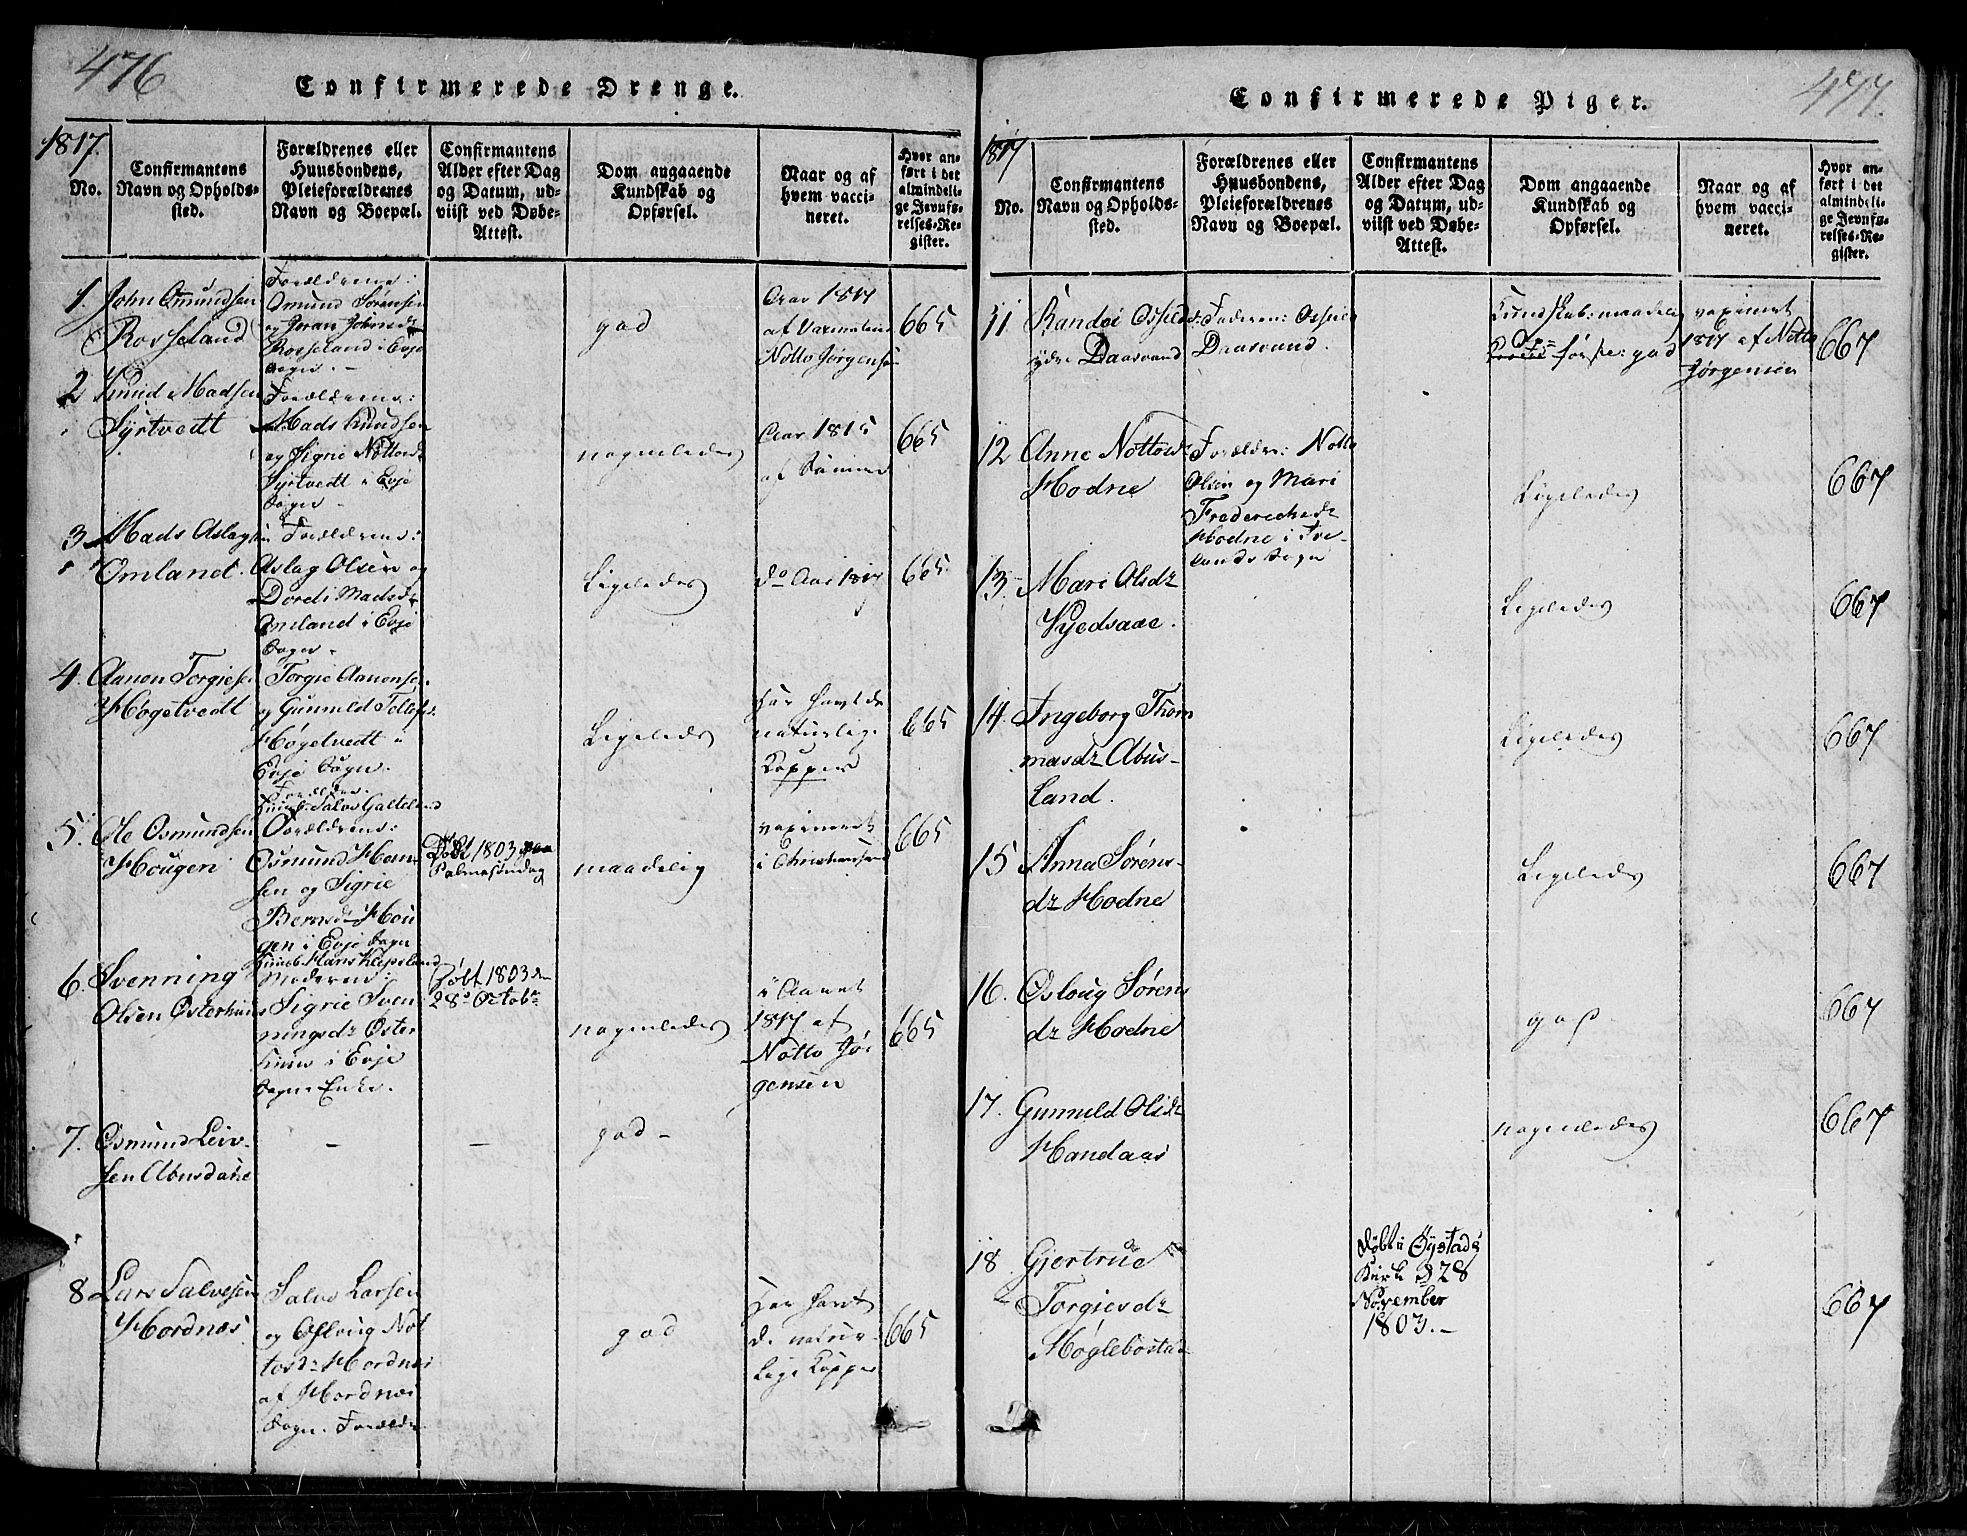 476
Confirmerede Drenge.
1817.
No.
Confirmantens
Navn og Opholds-
sted.
Forældrenes eller
Huusbondens,
Pleieforældrenes
Navn og Boepæl.
Confirmantens
Alder efter Dag
og Datum, ud-
viist ved Døbe-
Attest.
Dom angaaende
Kundskab og
Opførsel.
Naar og af
hvem vacci-
neret.
Hvor an-
ført i det
almindeli-
ge Jevnfø-
relses-Re-
gister.
1. John Osmundsen
Rosseland
Forældrene:
Osmund Sørensen
og Joran Johnsdr
Rosseland i Evje
Sogn.-
god
Aar 1817
af Vaxinateur
Notto Jørgensen
665
2 Knud Madsen
Syrtvedt
Forældrene:
Mads Knudsen
og Sigrie Nottosdr
Syrtvedt i Evje
Sogn -
nogenledes
Aar 1815
af Samme
665
3 Mads Aslagsen
Omland.
Forældrene:
Aslag Olsen og
Dorthi Madsdr
Omland i Evje
Sogn -
Ligeledes
do Aar 1817
665
4. Aanon Torgiesen
Høgetvedt
Torgie Aanonsen
og Gunnild Tellefsdr
Høgetvedt i
Evje Sogn.
Forældre.
Ligeledes
har havt de
naturlige
Kopper
665
5. Ole Osmundsen
Hougen
Huusb: Salve Galteland
Forældrene:
Osmund Han-
sen og Sigrie
Berntsdr Hou
gen i Evje Sogn
Døbt 1803 paa
Palmesøndag
maadelig
vaxineret
i Christiansand
665
6. Svenning
Olsen Østerhuus
Huusb. Hans Kiepsland
Moderen:
Sigrie Sven
ningsdr Øster
huus i Evje
Sogn Enke.
Døbt 1803 den
28de Octobr
nogenledes
i Aaret
1817 af
Notto Jør
gensen
665
7. Osmund Leiv-
sen Abusdane
-
-
god -
8 Lars Salvesen
Hordnes
Salve Larsen
og Osloug Not
tosdr Hordnes
af Hordnes
Sogn. Forældre
god
Har havt
de natur-
lige Kopper
665
477.
Confirmerede Piger.
1817
No.
Confirmantens
Navn og Opholds-
sted.
Forældrenes eller
Huusbondens,
Pleieforældrenes
Navn og Boepæl.
Confirmantens
Alder efter Dag
og Datum, ud-
viist ved Døbe-
Attest.
Dom angaaende
Kundskab og
Opførsel.
Naar og af
hvem vacci-
neret.
Hvor an-
ført i det
almindeli-
ge Jevnfø-
relses-Re-
gister.
11. Randei Osseldr
ydre Daasvand
Faderen: Ossuld
Daasvand.
Kundskab: maadelig
Op-
førsel: god
vaxineret
1817 af Notto
Jørgensen
667
12 Anne Nottosdr
Hodne
Forældre: Notto
Olsen og Mari
Frederechsdr
Hodne i Ive-
lands Sogn
Ligeledes
667
13. Mari Olsdr
Vyedsaae.
Ligeledes
667
14. Ingeborg Thom
masdr Abus-
land.
Ligeledes
667
15 Anna Sørens-
dr Hodne
Ligeledes
667
16. Osloug Sørens
dr Hodne
god.
667
17. Gunnild Olsdr
Handaas
nogenledes
667
18. Gjertrue
Torgiesdr
Møglebostad
Døbt i Øystads
Kirke d 28
November
1803.-
667